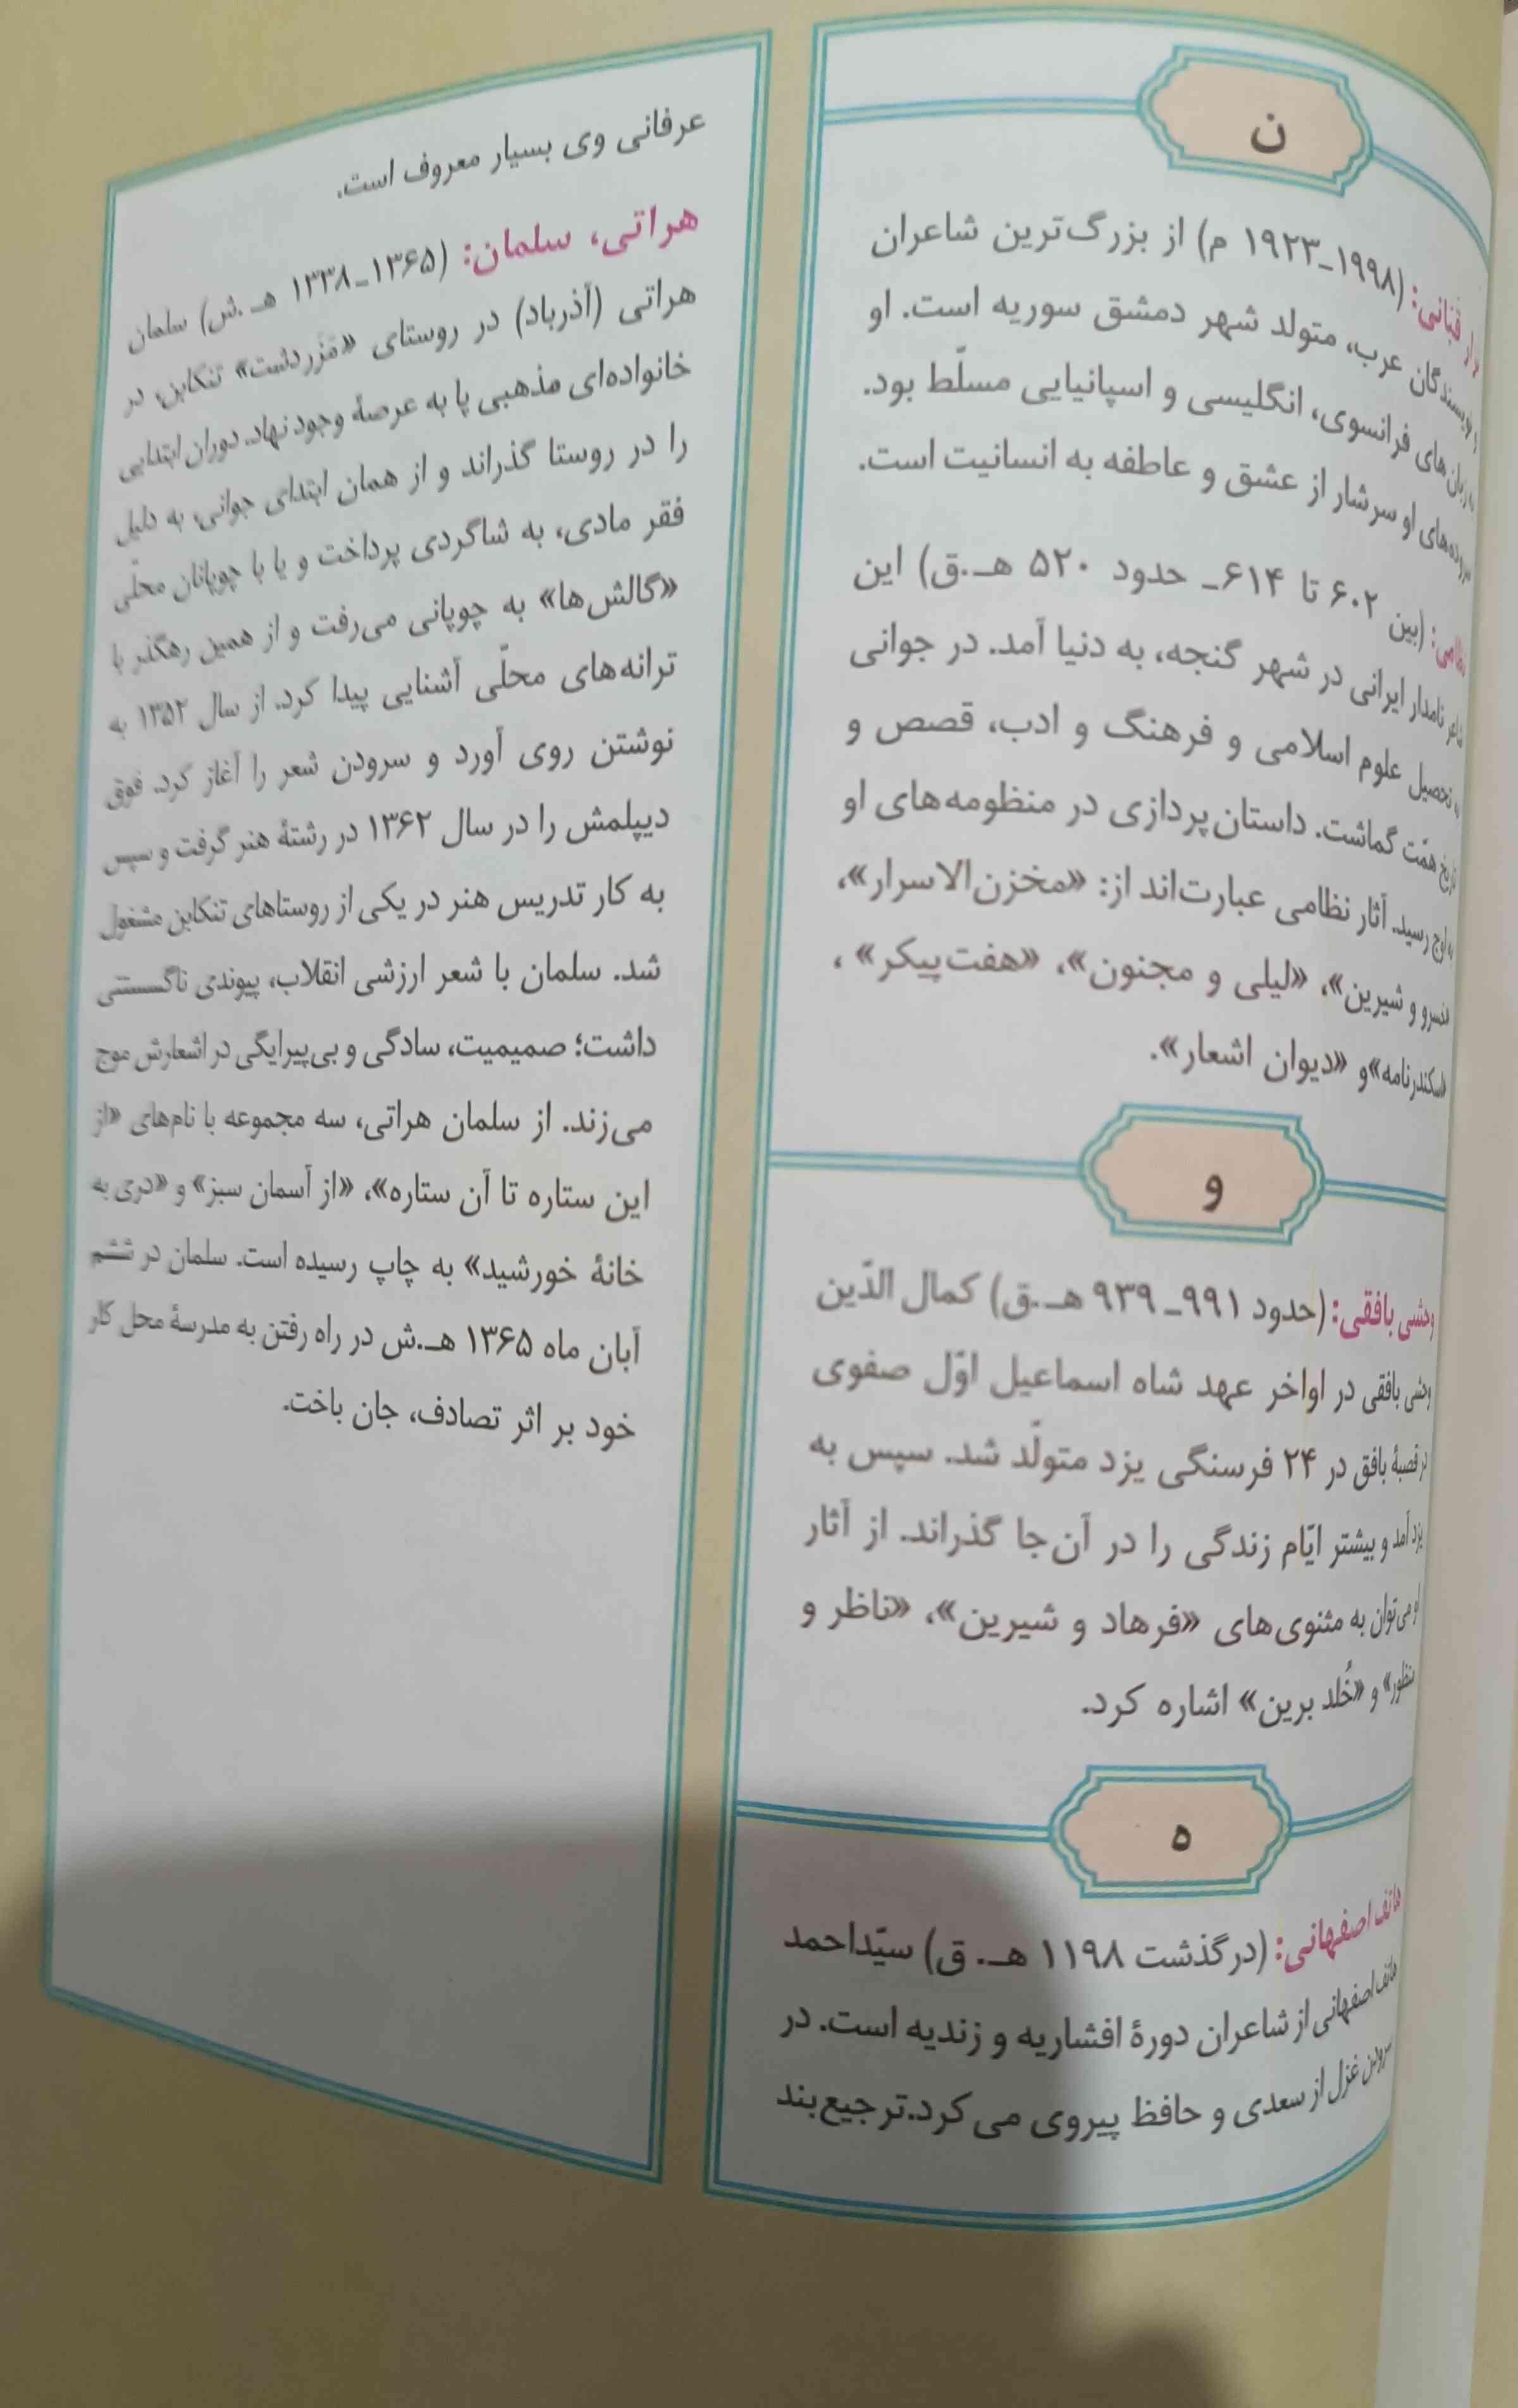 ن
نزار قبّانی: (۱۹۹۸ـ۱۹۲۳ م) از بزرگ‌ترین شاعران
و نویسندگان عرب، متولد شهر دمشق سوریه است. او
به زبان‌های فرانسوی، انگلیسی و اسپانیایی مسلّط بود.
سروده‌های او سرشار از عشق و عاطفه به انسانیت است.
نظامی: (بین ۶۰۲ تا ۶۱۴ـ حدود ۵۲۰ هـ.ق) این
شاعر نامدار ایرانی در شهر گنجه، به دنیا آمد. در جوانی
به تحصیل علوم اسلامی و فرهنگ و ادب، قصص و
تاریخ همّت گماشت. داستان‌پردازی در منظومه‌های او
به اوج رسید. آثار نظامی عبارت‌اند از: «مخزن‌الاسرار»،
«خسرو و شیرین»، «لیلی و مجنون»، «هفت‌پیکر» ،
«اسکندرنامه»و «دیوان اشعار».
و
وحشی بافقی: (حدود ۹۹۱ـ ۹۳۹ هـ.ق) کمال الدّین
وحشی بافقی در اواخر عهد شاه اسماعیل اوّل صفوی
در قصبهٔ بافق در ۲۴ فرسنگی یزد متولّد شد. سپس به
یزد آمد و بیشتر ایّام زندگی را در آن‌جا گذراند. از آثار
او می‌توان به مثنوی‌های «فرهاد و شیرین»، «ناظر و
منظور» و «خُلد برین» اشاره کرد.
ه
هاتف اصفهانی: (درگذشت ۱۱۹۸ هـ. ق) سیّداحمد
هاتف اصفهانی از شاعران دورهٔ افشاریه و زندیه است. در
سرودن غزل از سعدی و حافظ پیروی می کرد.ترجیع‌بند
عرفانی وی بسیار معروف است.
هراتی، سلمان: (۱۳۶۵ـ۱۳۳۸ هـ .ش) سلمان
هراتی (آذرباد) در روستای «مَزَردشت» تنکابن، در
خانواده‌ای مذهبی پا به عرصهٔ وجود نهاد. دوران ابتدایی
را در روستا گذراند و از همان ابتدای جوانی، به دلیل
فقر مادی، به شاگردی پرداخت و یا با چوپانان محلّی
«گالش‌ها» به چوپانی می‌رفت و از همین رهگذر با
ترانه‌های محلّی آشنایی پیدا کرد. از سال ۱۳۵۲ به
نوشتن روی آورد و سرودن شعر را آغاز کرد. فوق
دیپلمش را در سال ۱۳۶۲ در رشتهٔ هنر گرفت و سپس
به کار تدریس هنر در یکی از روستاهای تنکابن مشغول
شد. سلمان با شعر ارزشی انقلاب، پیوندی ناگسستنی
داشت؛ صمیمیت، سادگی و بی‌پیرایگی در اشعارش موج
می‌زند. از سلمان هراتی، سه مجموعه با نام‌های «از
این ستاره تا آن ستاره»، «از آسمان سبز» و «دری به
خانهٔ خورشید» به چاپ رسیده است. سلمان در ششم
آبان ماه ۱۳۶۵ هـ.ش در راه رفتن به مدرسهٔ محل کار
خود بر اثر تصادف، جان باخت.